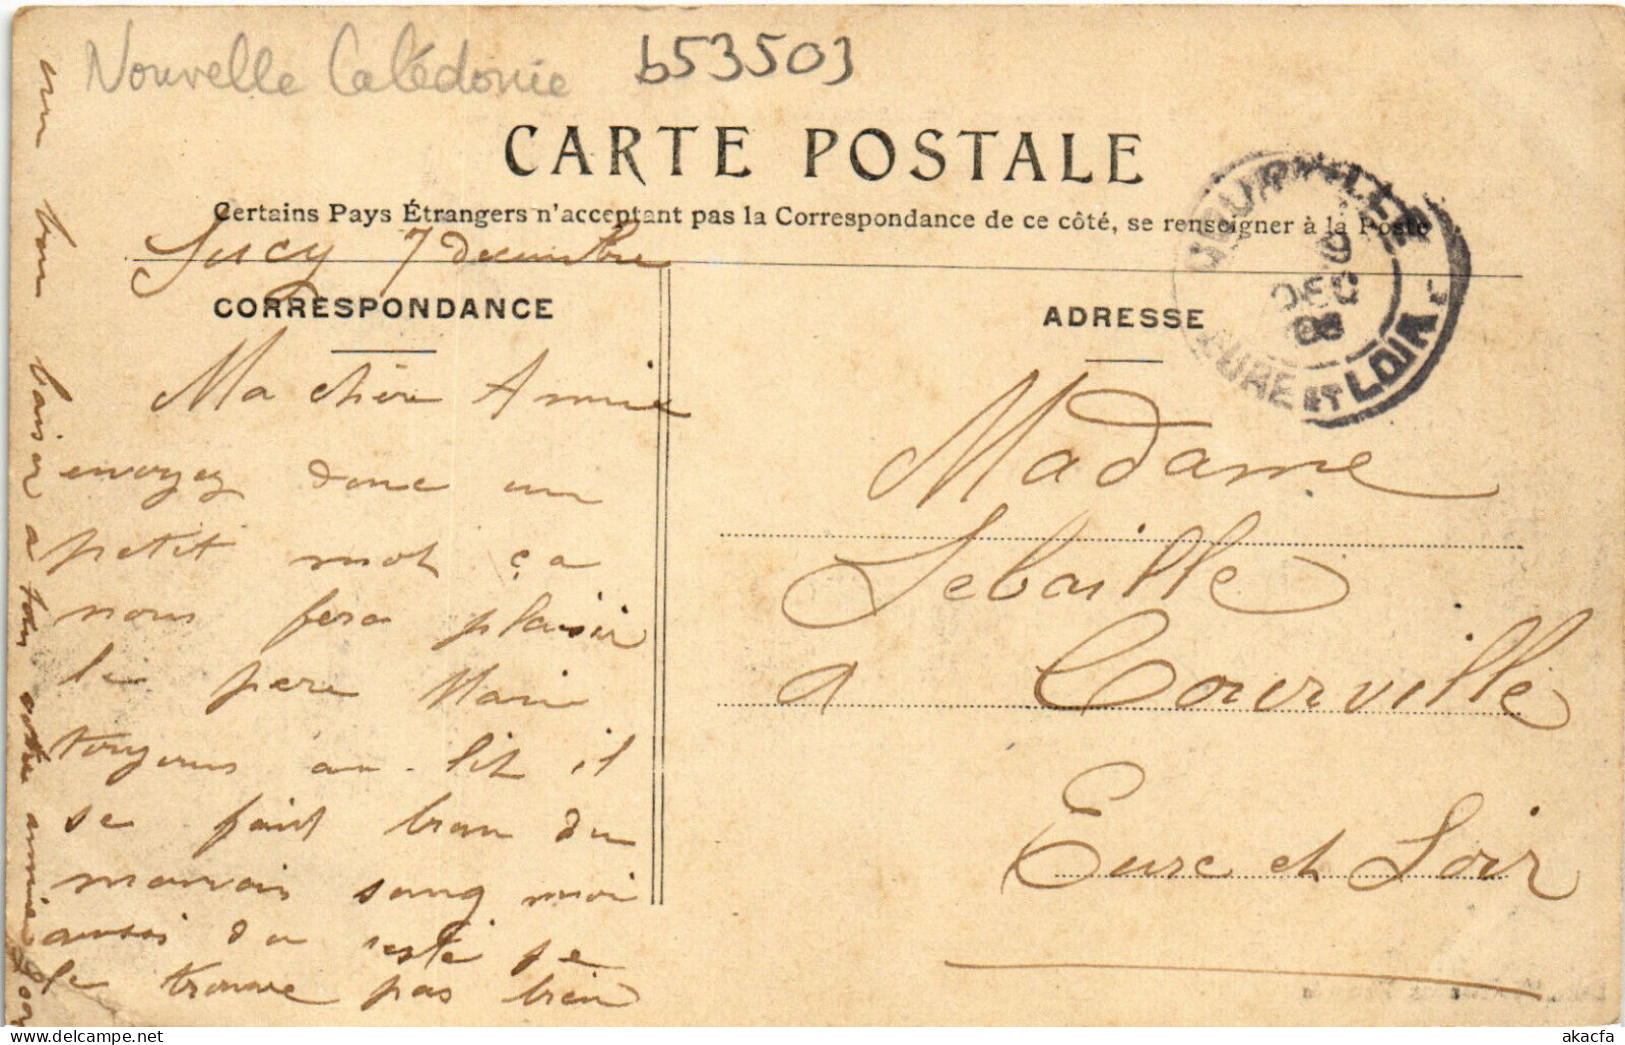 Nouvelle Calédonie
b53503
CARTE POSTALE
Certains Pays Étrangers n'acceptant pas la Correspondance de ce côté, se renseigner à la Poste
Sucy 7 decembre
CORRESPONDANCE
Ma chère Amie
envoyez donc un
petit mot ça
nous fera plaisir
le pere Marie
toujours au lit il
se fait bran du
mauvais sang moi
aussi du reste je
le trouve pas bien
un bon baiser a tous votre amie
ADRESSE
Madame
Lebaille
a Courville
Eure et Loir
COURVILLE
9
DEC
08
EURE ET LOIR
akacfa